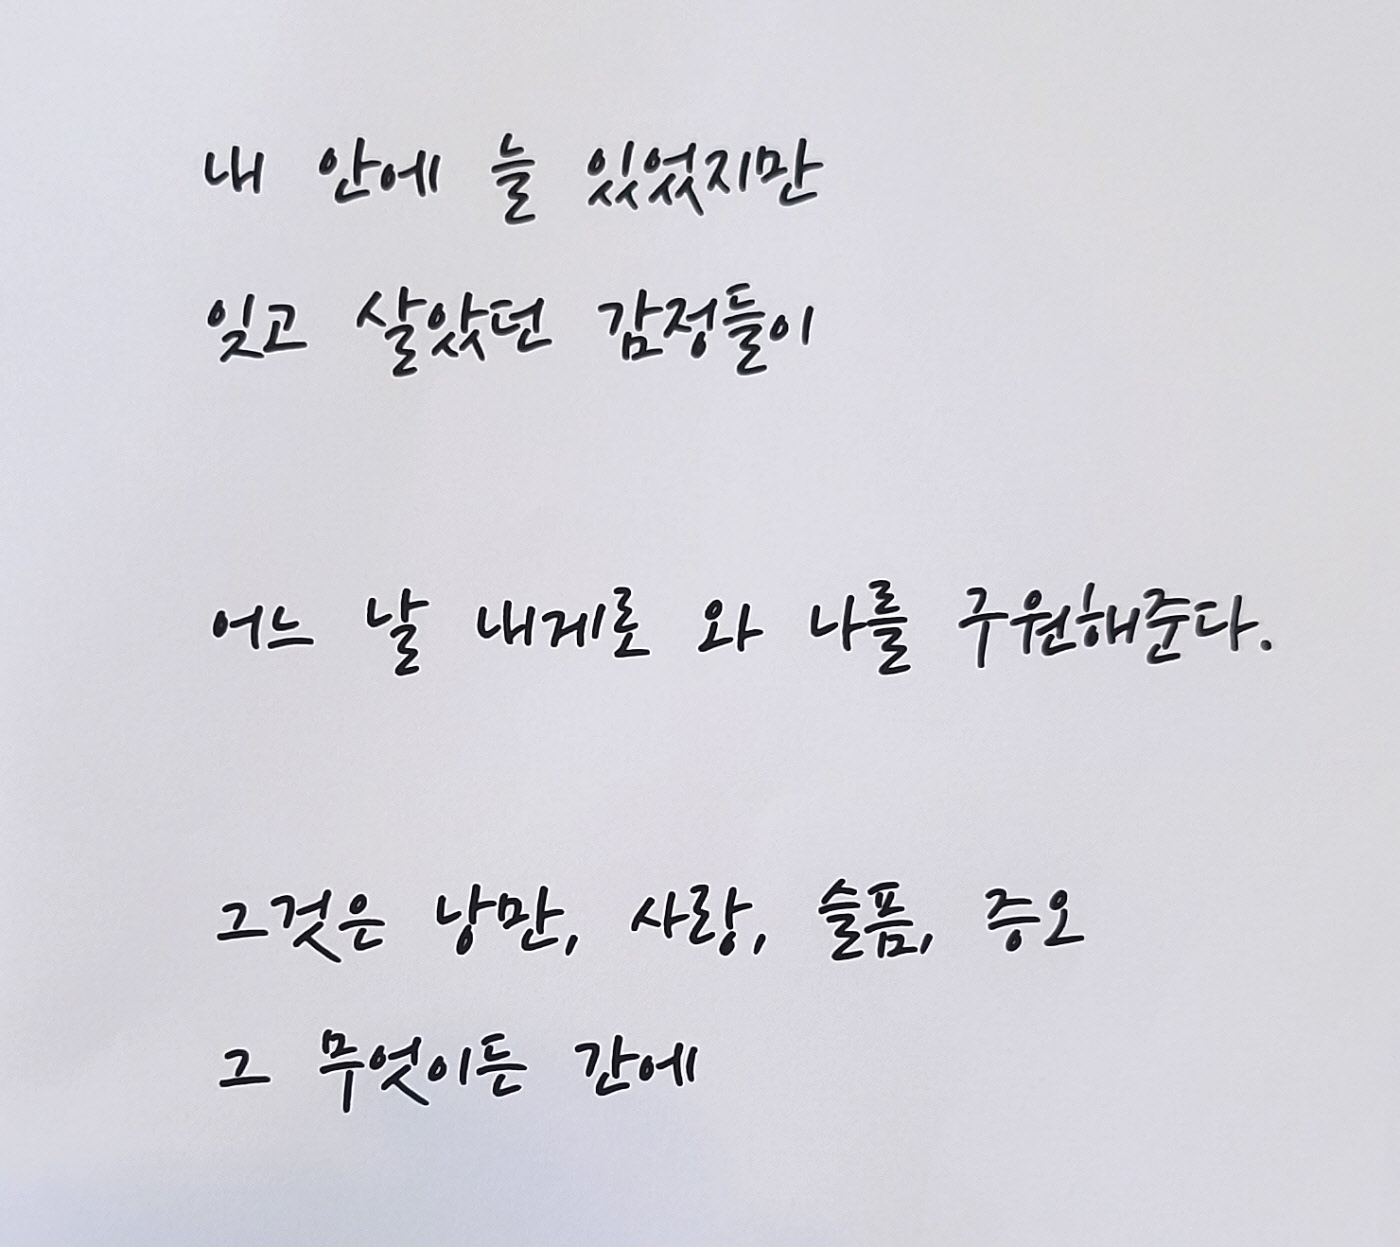 내 안에 늘 있었지만
잊고 살았던 감정들이
어느 날 내게로 와 나를 구원해준다.
그것은 낭만, 사랑, 슬픔, 증오
그 무엇이든 간에